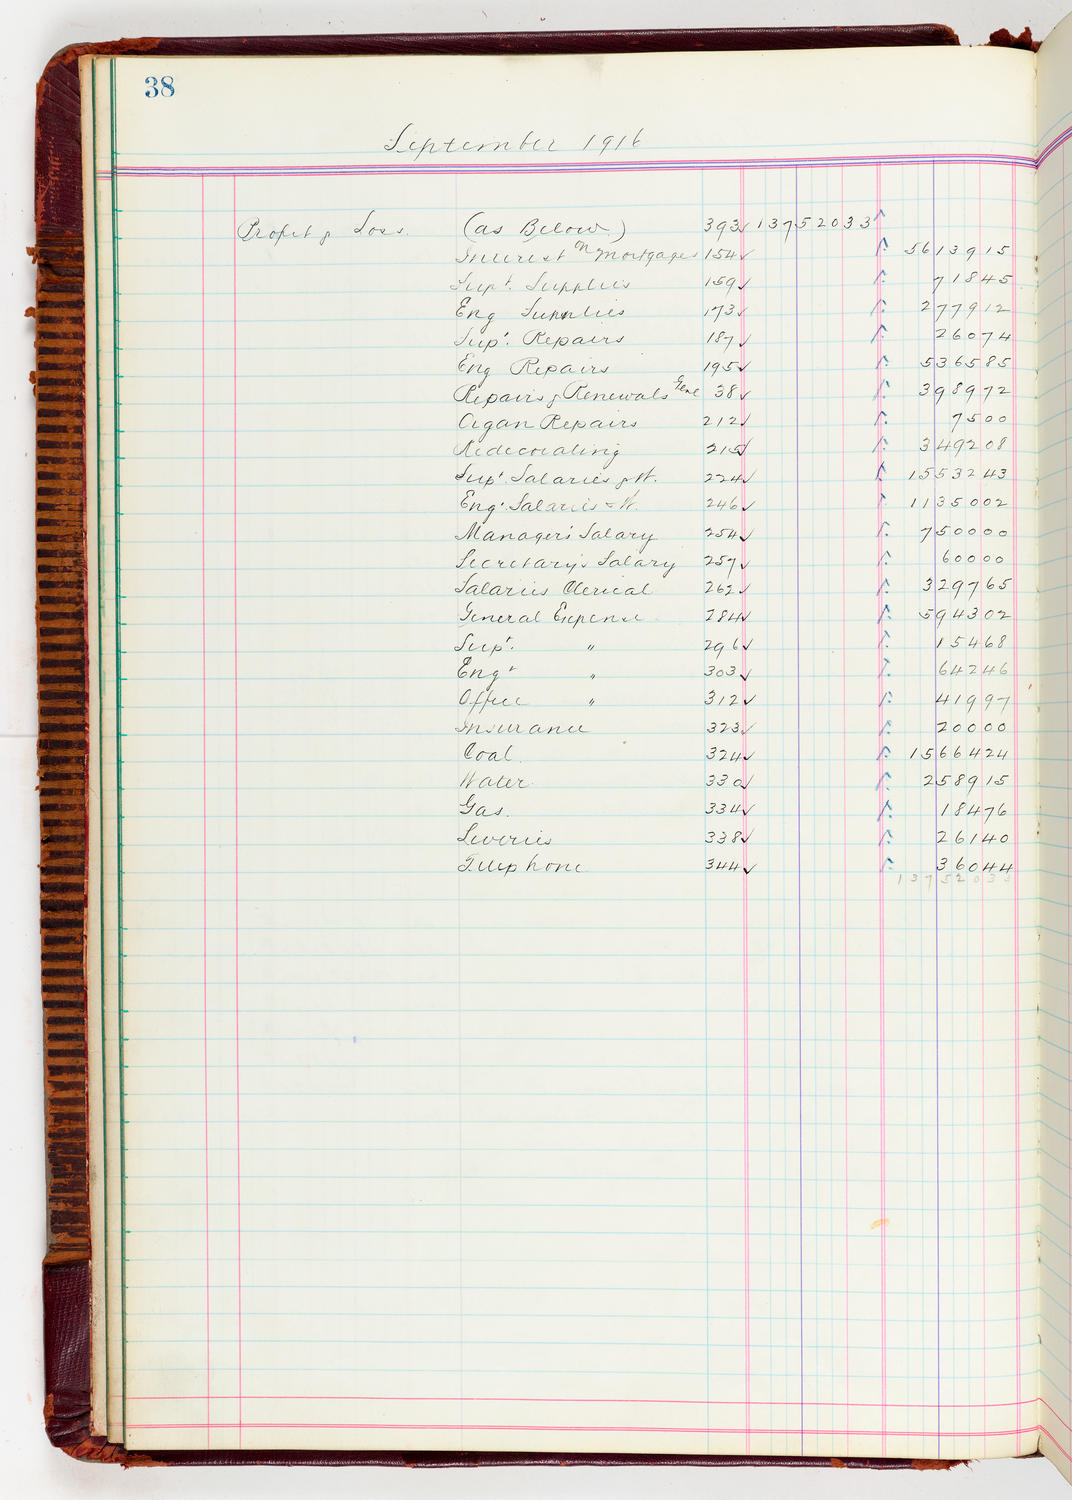 38
September 1916
Profit & Loss. (as Below) 393 13752033
Interest on Mortgages 154 5613915
Supt. Supplies 159 71845
Eng Supplies 173 277912
Supt. Repairs 187 26074
Eng Repairs 195 536585
Repairs & Renewals Genl 38 398972
Organ Repairs 212 7500
Redecorating 215 349208
Supt. Salaries & W. 224 1553243
Engr Salaries & W. 246 1135002
Manager's Salary 254 750000
Secretary's Salary 257 60000
Salaries Clerical 262 329765
General Expense 284 594302
Supt. " 296 15468
Engr " 303 64246
Office " 312 41997
Insurance 323 20000
Coal. 324 1566424
Water 330 258915
Gas. 334 18476
Liveries 338 26140
Telephone 344 36044
13752033